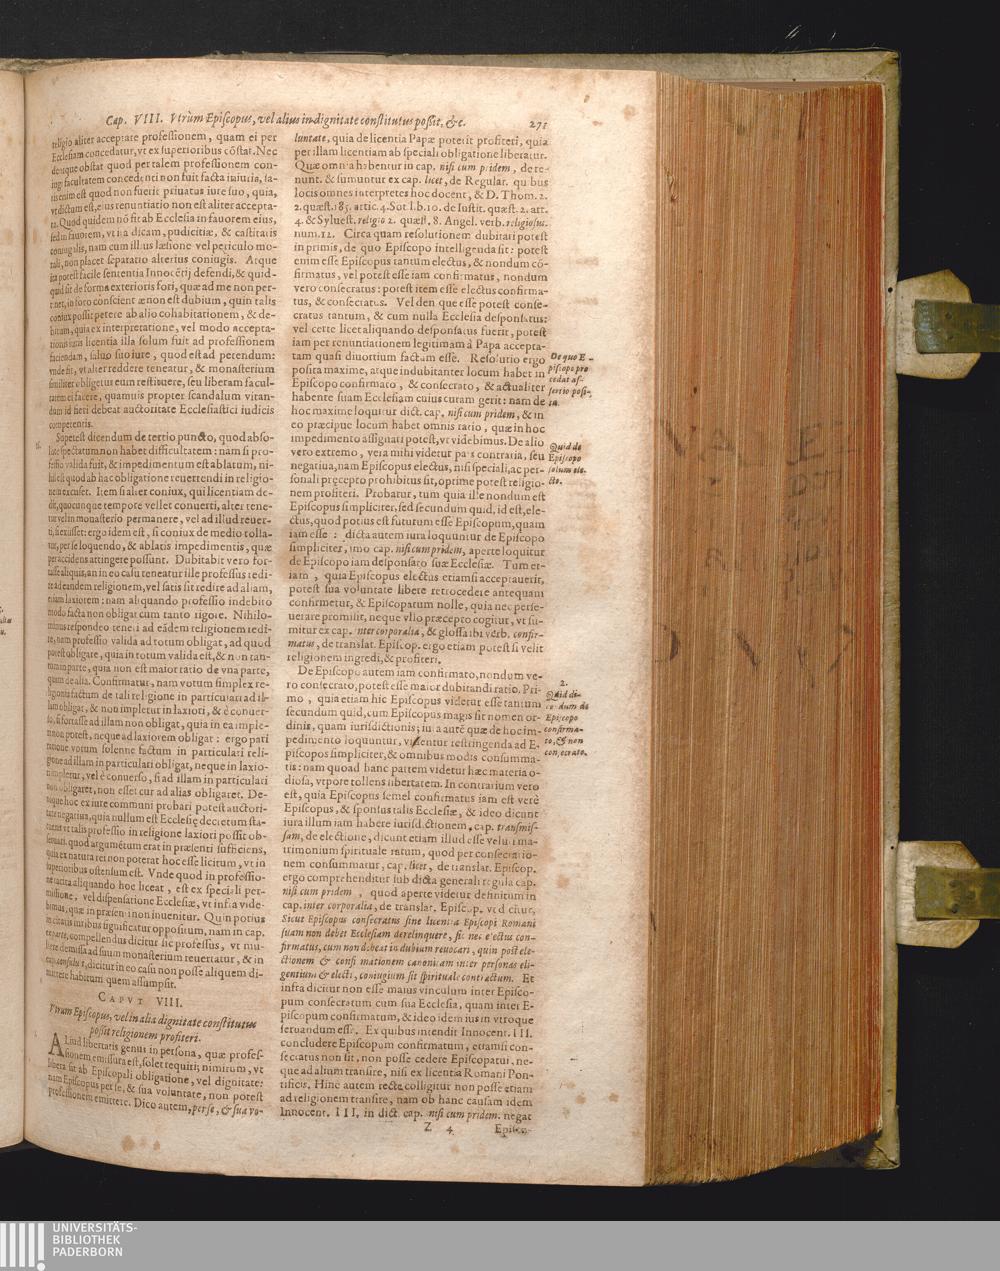 Cap. VIII. Vtrùm Episcopus, vel alius in dignitate constitutus possit, &c. 271
religio aliter acceptare professionem, quam ei per
Ecclesiam concedatur, vt ex superioribus cōstat. Nec
denique obstat quod per talem professionem con-
iugi facultatem concedenti non fuit facta iniuria, sa-
tis enim est quod non fuerit priuatus iure suo, quia,
vt dictum est, eius renuntiatio non est aliter accepta-
ta. Quod quidem nō fit ab Ecclesia in fauorem eius,
sed in fauorem, vt ita dicam, pudicitiæ, & castitatis
coniugalis, nam cum illius læsione vel periculo mo-
rali, non placet separatio alterius coniugis. Atque
ita potest facile sententia Innocētij defendi, & quid-
quid sit de forma exterioris fori, quæ ad me non per-
tinet, in foro conscientiæ non est dubium, quin talis
coniux possit petere ab alio cohabitationem, & de-
bitum, quia ex interpretatione, vel modo accepta-
tionis talis licentia illa solum fuit ad professionem
faciendam, saluo suo iure, quod est ad petendum:
vnde fit, vt alter reddere teneatur, & monasterium
similiter obligetur eum restituere, seu liberam facul-
tatem ei facere, quamuis propter scandalum vitan-
dum id fieri debeat auctoritate Ecclesiastici iudicis
competentis.
Superest dicendum de tertio puncto, quod abso-
lute spectatum non habet difficultatem: nam si pro-
fessio valida fuit, & impedimentum est ablatum, ni-
hil est quod ab hac obligatione reuertendi in religio-
nem excuset. Item si alter coniux, qui licentiam de-
dit, quocunque tempore vellet conuerti, alter tene-
tur vel in monasterio permanere, vel ad illud reuer-
ti, si exiisset: ergo idem est, si coniux de medio tolla-
tur, per se loquendo, & ablatis impedimentis, quæ
per accidens attingere possunt. Dubitabit vero for-
tasse aliquis, an in eo casu teneatur ille professus redi-
re ad eandem religionem, vel satis sit redire ad aliam,
etiam laxiorem: nam aliquando professio indebito
modo facta non obligat cum tanto rigore. Nihilo-
minus respondeo teneri ad eādem religionem redi-
re, nam professio valida ad totum obligat, ad quod
potest obligare, quia in totum valida est, & non tan-
tum in parte, quia non est maior ratio de vna parte,
quam de alia. Confirmatur, nam votum simplex re-
ligionis factum de tali religione in particulari ad il-
lam obligat, & non impletur in laxiori, & è conuer-
so, si fortasse ad illam non obligat, quia in ea imple-
ri non potest, neque ad laxiorem obligat: ergo pari
ratione votum solenne factum in particulari reli-
gione ad illam in particulari obligat, neque in laxio-
ri impletur, vel è conuerso, si ad illam in particulari
non obligaret, non esset cur ad alias obligaret. De-
nique hoc ex iure communi probari potest auctori-
tate negatiua, quia nullum est Ecclesię decretum sta-
tuens vt talis professio in religione laxiori possit ob-
seruari. quod argumētum erat in præsenti sufficiens,
quia ex natura rei non poterat hoc esse licitum, vt in
superioribus ostensum est. Vnde quod in professio-
ne tacita aliquando hoc liceat, est ex speciali per-
missione, vel dispensatione Ecclesiæ, vt infra vide-
bimus, quæ in præsenti non inuenitur. Quin potius
in citatis iuribus significatur oppositum, nam in cap.
ex parte, compellendus dicitur sic professus, vt mu-
liere demissa ad suum monasterium reuertatur, & in
cap. consuluit, dicitur in eo casu non posse aliquem di-
mittere habitum quem assumpsit.
CAPVT VIII.
Vtrum Episcopus, vel in alia dignitate constitutus
possit religionem profiteri.
ALiud libertatis genus in persona, quæ profes-
sionem emissura est, solet requiri; nimirum, vt
libera sit ab Episcopali obligatione, vel dignitate:
nam Episcopus per se, & sua voluntate, non potest
professionem emittere. Dico autem, per se, & sua vo-
luntate, quia de licentia Papæ poterit profiteri, quia
per illam licentiam ab speciali obligatione liberatur.
Quæ omnia habentur in cap. nisi cum pridem, de re-
nunt. & sumuntur ex cap. licet, de Regular. quibus
locis omnes interpretes hoc docent, & D. Thom. 2.
2. quæst. 185. artic. 4. Sot. lib. 10. de Iustit. quæst. 2. art.
4. & Syluest. religio 2. quæst. 8. Angel. verb. religiosus.
num. 12. Circa quam resolutionem dubitari potest
in primis, de quo Episcopo intelligenda sit: potest
enim esse Episcopus tantum electus, & nondum cō-
firmatus, vel potest esse iam confirmatus, nondum
vero consecratus: potest item esse electus confirma-
tus, & consecratus. Vel denique esse potest conse-
cratus tantum, & cum nulla Ecclesia desponsatus:
vel certe licet aliquando desponsatus fuerit, potest
iam per renuntiationem legitimam à Papa accepta-
tam quasi diuortium factum esse. Resolutio ergo
posita maxime, atque indubitanter locum habet in
Episcopo confirmato, & consecrato, & actualiter
habente suam Ecclesiam cuius curam gerit: nam de
hoc maxime loquitur dict. cap. nisi cum pridem, & in
eo præcipue locum habet omnis ratio, quæ in hoc
impedimento assignari potest, vt videbimus. De alio
vero extremo, vera mihi videtur pars contraria, seu
negatiua, nam Episcopus electus, nisi speciali, ac per-
sonali pręcepto prohibitus sit, optime potest religio-
nem profiteri. Probatur, tum quia ille nondum est
Episcopus simpliciter, sed secundum quid, id est, ele-
ctus, quod potius est futurum esse Episcopum, quam
iam esse: dicta autem iura loquuntur de Episcopo
simpliciter, imo cap. nisi cum pridem, aperte loquitur
de Episcopo iam desponsato suæ Ecclesiæ. Tum et-
iam, quia Episcopus electus etiamsi acceptauerit,
potest sua voluntate libere retrocedere antequam
confirmetur, & Episcopatum nolle, quia nec perse-
uerare promisit, neque vllo præcepto cogitur, vt su-
mitur ex cap. inter corporalia, & glossa ibi verb. confir-
matus, de translat. Episcop. ergo etiam potest si velit
religionem ingredi, & profiteri.
De Episcopo autem iam confirmato, nondum ve-
ro consecrato, potest esse maior dubitandi ratio. Pri-
mo, quia etiam hic Episcopus videtur esse tantum
secundum quid, cum Episcopus magis sit nomen or-
dinis, quam iurisdictionis; iura autē quæ de hoc im-
pedimento loquuntur, videntur restringenda ad E-
piscopos simpliciter, & omnibus modis consumma-
tis: nam quoad hanc partem videtur hæc materia o-
diosa, vtpote tollens libertatem. In contrarium vero
est, quia Episcopus semel confirmatus iam est verè
Episcopus, & sponsus talis Ecclesiæ, & ideo dicunt
iura illum iam habere iurisdictionem, cap. transmis-
sam, de electione, dicunt etiam illud esse velut ma-
trimonium spirituale ratum, quod per consecratio-
nem consummatur, cap. licet, de translat. Episcop.
ergo comprehenditur sub dicta generali regula cap.
nisi cum pridem, quod aperte videtur definitum in
cap. inter corporalia, de translat. Episcop. vt dicitur,
Sicut Episcopus consecratus sine licentia Episcopi Romani
suam non debet Ecclesiam derelinquere, sic nec electus con-
firmatus, cum non debeat in dubium reuocari, quin post ele-
ctionem & confirmationem canonicam inter personas eli-
gentium & electi, coniugium sit spirituale contractum. Et
infra dicitur non esse maius vinculum inter Episco-
pum consecratum cum sua Ecclesia, quam inter E-
piscopum confirmatum, & ideo idem ius in vtroque
seruandum esse. Ex quibus intendit Innocent. III.
concludere Episcopum confirmatum, etiamsi con-
secratus non sit, non posse cedere Episcopatui, ne-
que ad alium transire, nisi ex licentia Romani Pon-
tificis. Hinc autem recte colligitur non posse etiam
ad religionem transire, nam ob hanc causam idem
Innocent. III, in dict. cap. nisi cum pridem. negat
Z 4 Episco-
De quo E-
piscopo pro
cedat as-
sertio posi-
ta.
Quid de
Episcopo
solum ele-
cto.
2.
Quid di-
cendum de
Episcopo
confirma-
to, & non
consecrato.
UNIVERSITÄTS-
BIBLIOTHEK
PADERBORN